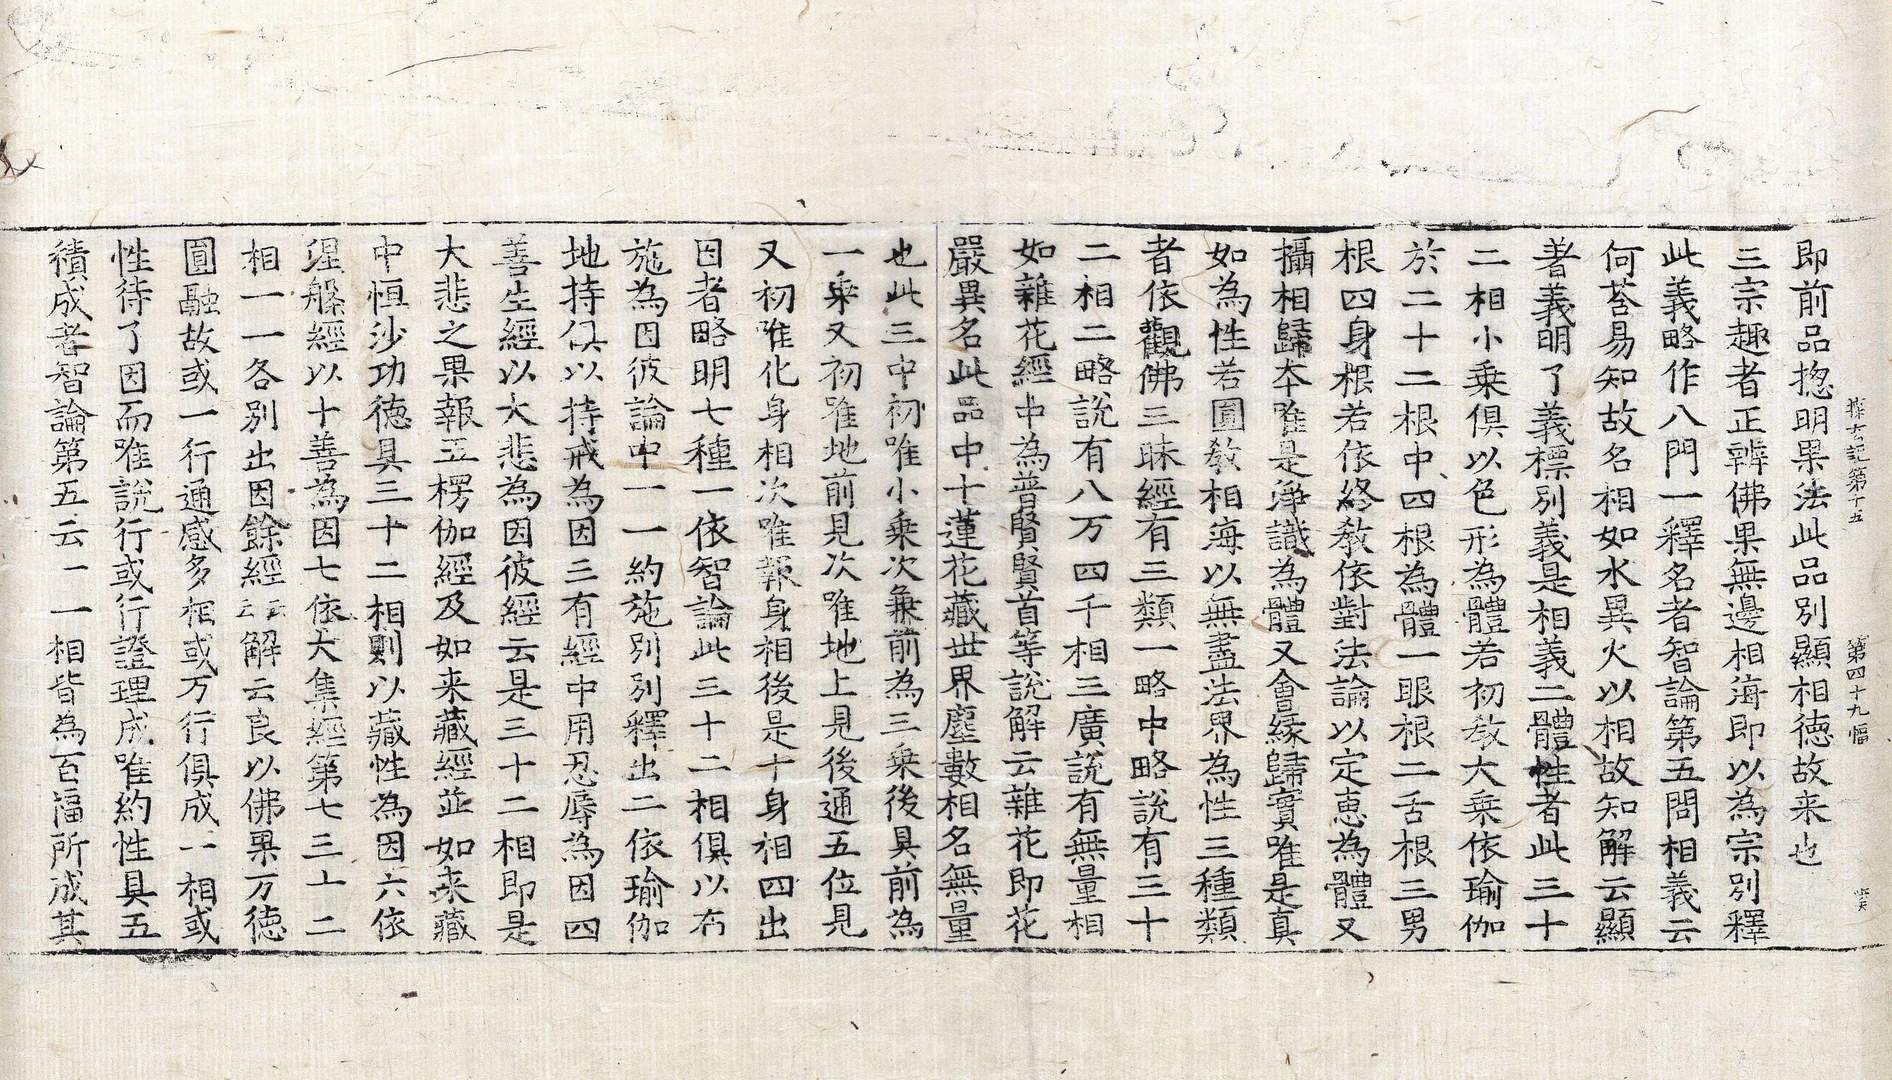 探玄記第十五　第四十九幅
即前品揔明果法此品別顯相徳故来也
三宗趣者正辨佛果無邊相海即以為宗別釋
此義略作八門一釋名者智論第五問相義云
何荅易知故名相如水異火以相故知解云顯
著義明了義標別義是相義二體性者此三十
二相小乗俱以色形為體若初教大乗依瑜伽
於二十二根中四根為體一眼根二舌根三男
根四身根若依終教依對法論以定恵為體又
攝相歸本唯是淨識為體又會縁歸實唯是真
如為性若圓教相海以無盡法界為性三種類
者依觀佛三昧經有三類一略中略說有三十
二相二略說有八万四千相三廣說有無量相
如雜花經中為普賢賢首等說解云雜花即花
嚴異名此品中十蓮花藏世界塵數相名無量
也此三中初唯小乗次兼前為三乗後具前為
一乗又初唯地前見次唯地上見後通五位見
又初唯化身相次唯報身相後是十身相四出
因者略明七種一依智論此三十二相俱以布
施為因彼論中一一約施別別釋出二依瑜伽
地持俱以持戒為因三有經中用忍辱為因四
善生經以大悲為因彼經云是三十二相即是
大悲之果報五楞伽經及如来藏經並如来藏
中恒沙功徳具三十二相則以藏性為因六依
涅槃經以十善為因七依大集經第七三十二
相一一各別出因餘經云云解云良以佛果万徳
圓融故或一行通感多相或万行俱成一相或
性待了因而唯說行或行證理成唯約性具五
積成者智論第五云一一相皆為百福所成其